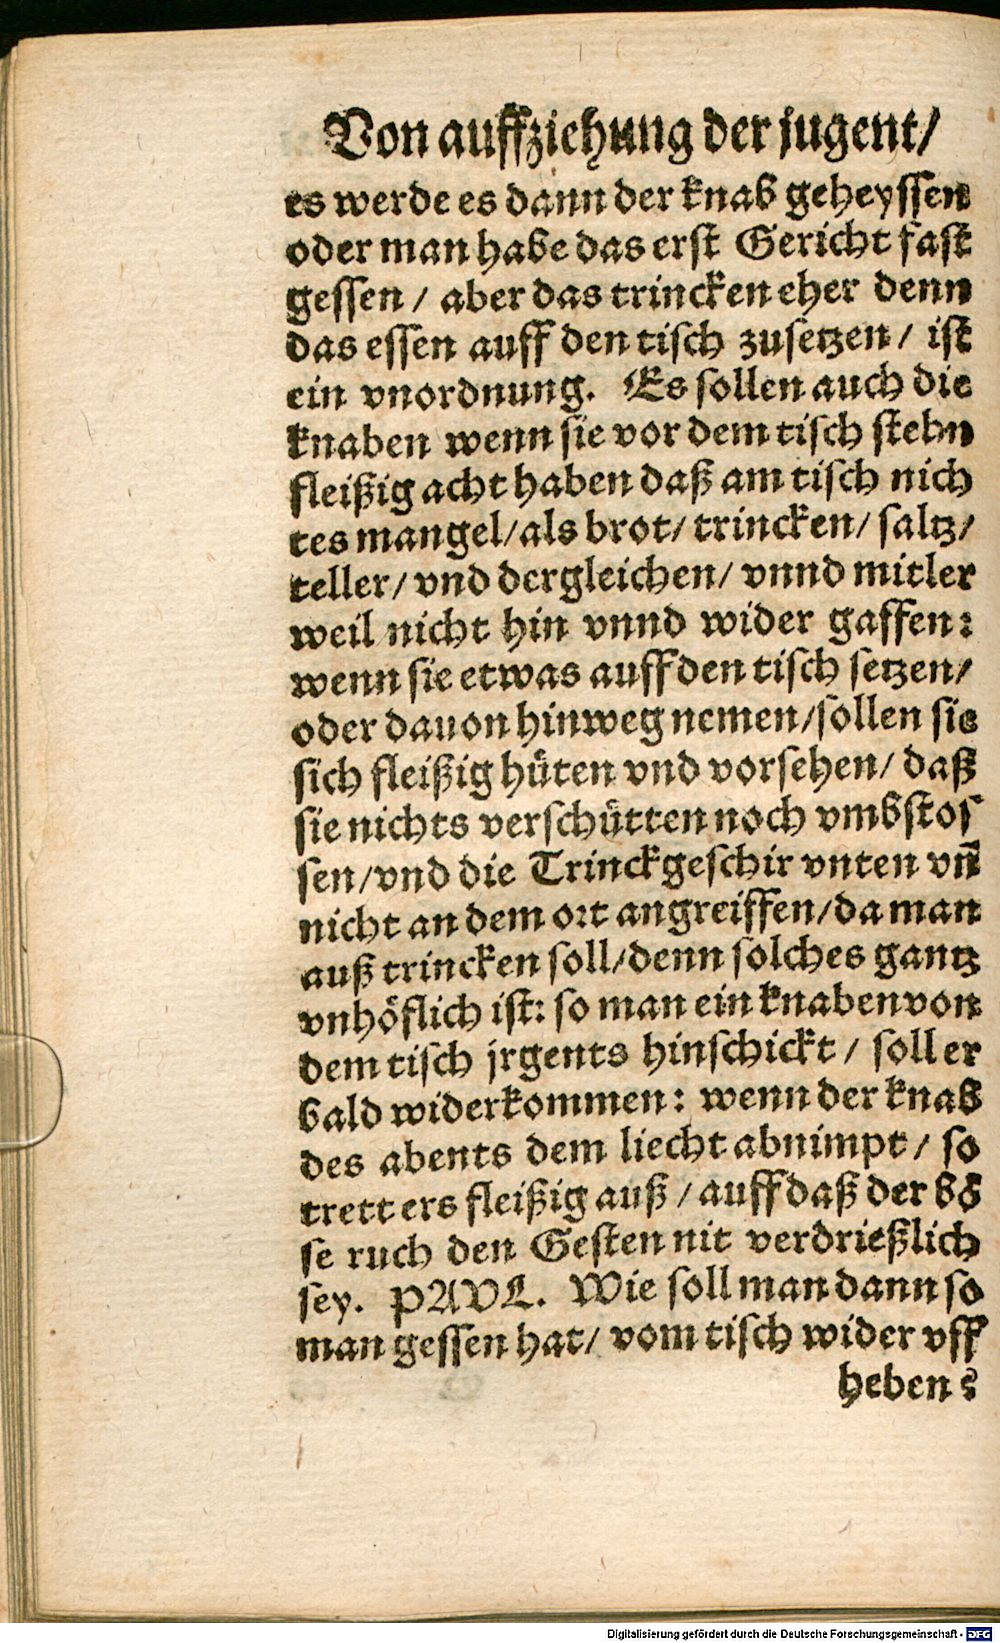 Von auffziehung der jugent/
es werde es dann der knab geheyssen
oder man habe das erst Gericht fast
gessen / aber das trincken eher denn
das essen auff den tisch zusetzen / ist
ein vnordnung. Es sollen auch die
knaben wenn sie vor dem tisch stehn
fleißig acht haben daß am tisch nich
tes mangel/als brot/ trincken/ saltz/
teller/ vnd dergleichen/ vnnd mitler
weil nicht hin vnnd wider gaffen:
wenn sie etwas auff den tisch setzen/
oder dauon hinweg nemen/sollen sie
sich fleißig hüten vnd vorsehen/ daß
sie nichts verschütten noch vmbstos
sen/vnd die Trinckgeschir vnten vñ
nicht an dem ort angreiffen/da man
auß trincken soll/denn solches gantz
vnhöflich ist: so man ein knaben von
dem tisch jrgents hinschickt / soll er
bald widerkommen: wenn der knab
des abents dem liecht abnimpt / so
trett ers fleißig auß / auff daß der bö
se ruch den Gesten nit verdrießlich
sey. PAVL. Wie soll man dann so
man gessen hat/ vom tisch wider vff
heben?
Digitalisierung gefördert durch die Deutsche Forschungsgemeinschaft - DFG